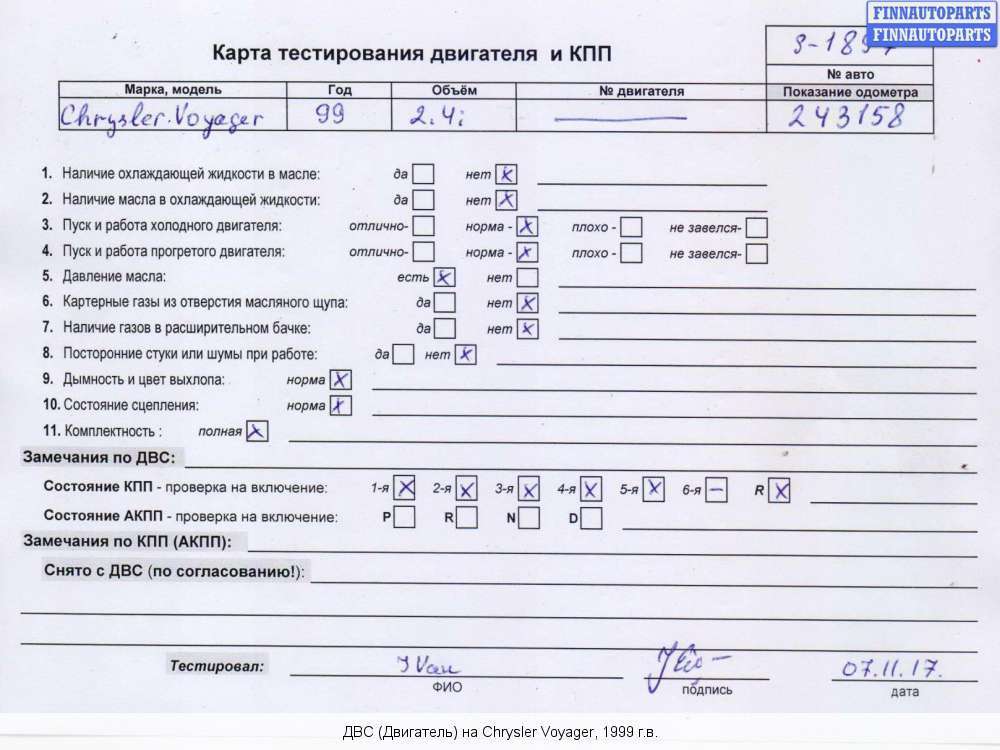 FINNAUTOPARTS
FINNAUTOPARTS
Карта тестирования двигателя и КПП
№ авто
Марка, модель Год Объём № двигателя Показание одометра
Chrysler.Voyager 99 2.4i — 243158
1. Наличие охлаждающей жидкости в масле: да нет x
2. Наличие масла в охлаждающей жидкости: да нет x
3. Пуск и работа холодного двигателя: отлично- норма - x плохо - не завелся-
4. Пуск и работа прогретого двигателя: отлично- норма - x плохо - не завелся-
5. Давление масла: есть x нет
6. Картерные газы из отверстия масляного щупа: да нет x
7. Наличие газов в расширительном бачке: да нет x
8. Посторонние стуки или шумы при работе: да нет x
9. Дымность и цвет выхлопа: норма x
10. Состояние сцепления: норма x
11. Комплектность : полная x
Замечания по ДВС:
Состояние КПП - проверка на включение: 1-я x 2-я x 3-я x 4-я x 5-я x 6-я – R x
Состояние АКПП - проверка на включение: P R N D
Замечания по КПП (АКПП):
Снято с ДВС (по согласованию!):
Тестировал: IVan 07.11.17.
ФИО подпись дата
ДВС (Двигатель) на Chrysler Voyager, 1999 г.в.